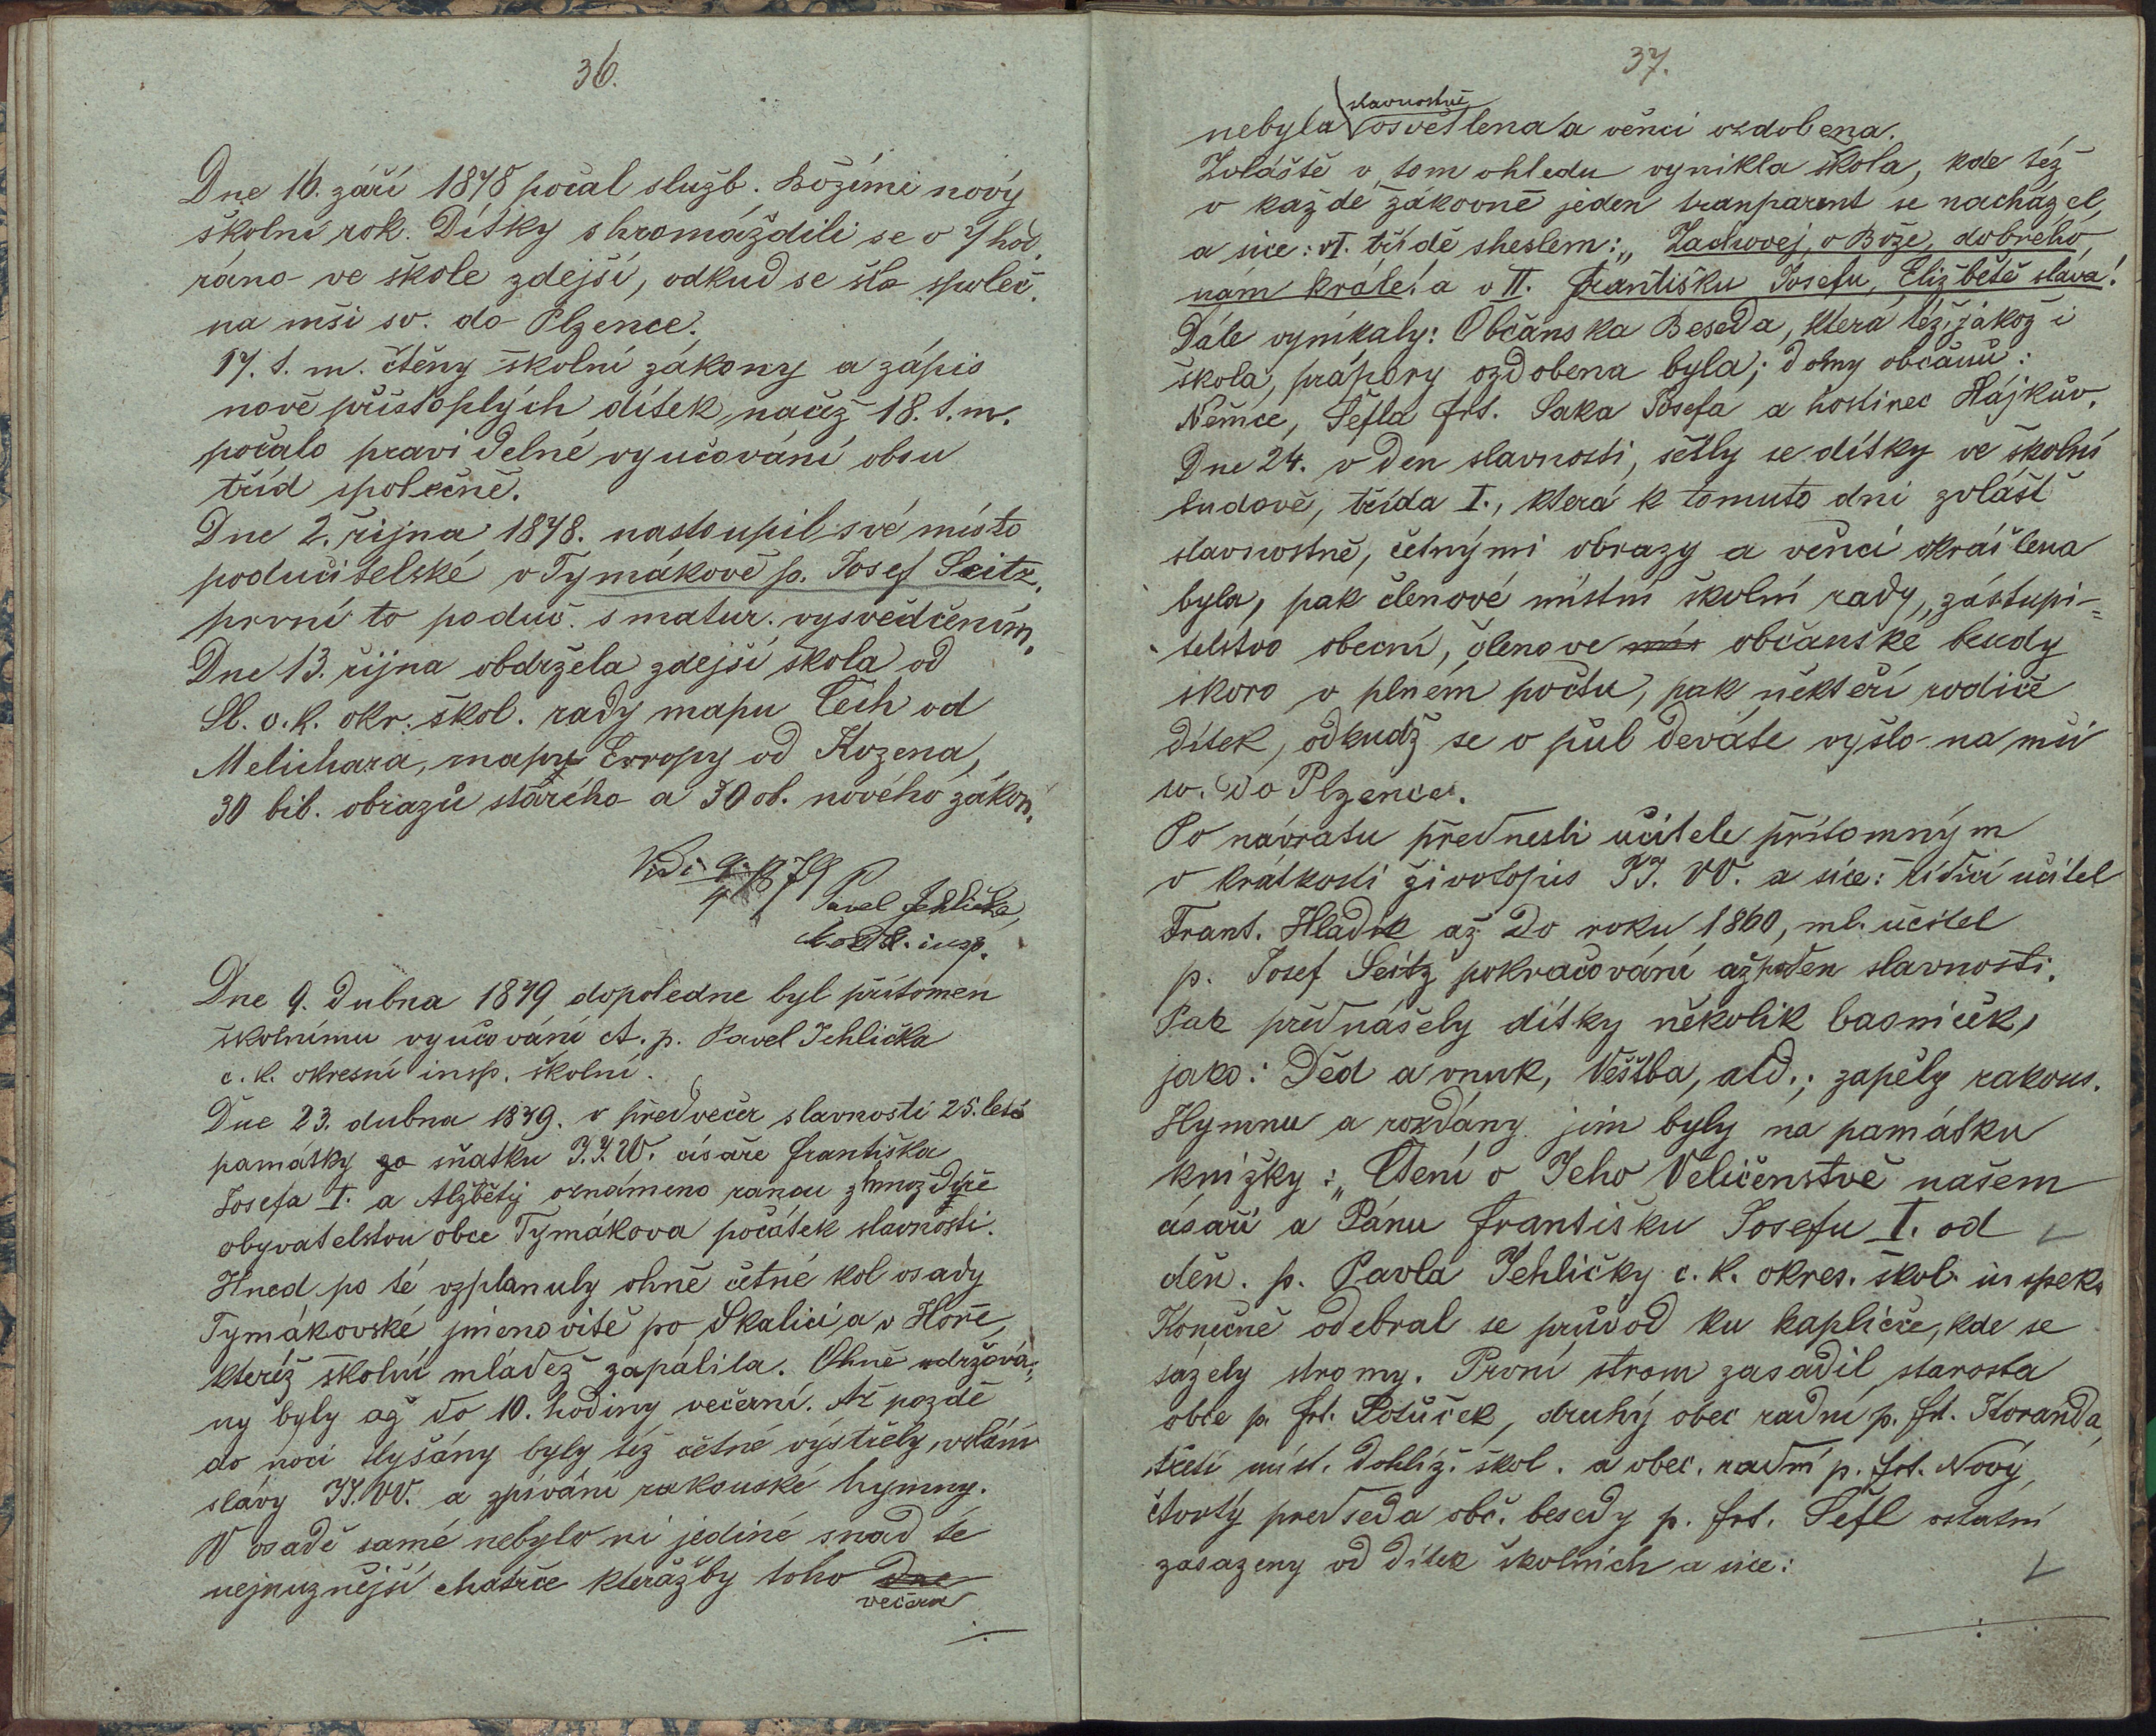 36.
Dne 16. září 1878 počal služb. Božími nový
školní rok. Dítky shromáždili se o 7 hod.
ráno ve škole zdejší, odkud se šlo společ.
na mši sv. do Plzence.
17. t. m. čtěny školní zákony a zápis
nově přistoplých dítek, načež 18. t. m.
počalo pravidelné vyučování obou
tříd společně.
Dne 2. října 1878. nastoupil své místo
podučitelské v Tymákově p. Josef Seitz,
první to poduč. s matur. vysvědčením.
Dne 13. října obdržela zdejší škola od
Sl. c. k. okr. škol. rady mapu Čech od
Melichara, mapu Evropy od Kozena,
30 bib. obrazů starého a 30 ob. nového zákon.
Vidi 9/4 1879
Pavel Jehlička,
insp.
Dne 9. dubna 1879 dopoledne byl přítomen
školnímu vyučování ct. p. Pavel Jehlička
c. k. okresní insp. školní.
Dne 23. dubna 1879. v předvečer slavnosti 25. leté
památky go sňatku J.J.V.V. císaře Františka
Josefa I. a Alžběty oznámeno ranou z hmoždýře
obyvatelstvu obce Tymákova počátek slavnosti.
Hned po té vzplanuly ohně četné kol osady
Tymákovské jmenovitě po Skalici a v Hoře,
kteréž školní mládež zapálila. Ohně udržová-
ny byly až do 10. hodiny večerní. Až pozdě
do noci slyšány byly též četné výstřely, volání
slávy JJ.VV. a zpívání rakouské hymny.
V osadě samé nebylo ni jediné snad té
nejnuznější chatrče kterážby toho dne
večera
37.
slavnostně
nebyla osvětlena a věnci ozdobena.
Zvláště v tom ohledu vynikla škola, kde též
v každé žákovně jeden tranparent se nacházel,
a sice: v I. třídě s heslem: „Zachovej, o Bože, dobrého
nám krále! a v II. Františku Josefu, Elizbětě sláva!
Dále vynikaly: Občanska Beseda, která též, jakož i
škola, prápory ozdobena byla; domy občanů:
Němce, Šefla Frt. Saka Josefa a hostinec Hájkův.
Dne 24. v den slavnosti, sešly se dítky ve školní
budově, třída I., která k tomuto dni zvlášť
slavnostně, četnými obrazy a věnci okrášlena
byla, pak členové místní školní rady, zástupi-
telstvo obecní, členove mís občanské besedy
skoro v plném počtu, pak někteří rodiče
dítek, odkudž se o půl deváté vyšlo na mši
sv. do Plzence.
Po návratu přednesli učitele přítomným
v krátkosti životopis JJ. VV. a sice: řídící učitel
Frant. Hladík až do roku 1860, ml. učitel
p. Josef Seitz pokračování až po den slavnosti.
Pak přednášely dítky několik basniček,
jako: Děd a vnuk, Věštba, atd.; zapěly rakous.
Hymnu a rozdány jim byly na památku
knížky: „Čtení o Jeho Veličenstvě našem
císaři a Pánu Františku Josefu I. od
děn. p. Pavla Jehličky c. k. okres. škol. inspek.
Konečně odebral se průvod ku kapličce, kde se
sázely stromy. První strom zasadil starosta
obce p. frt. Potůček, druhý obec radní p. frt. Koranda,
třetí míst. dohlíž. škol. a obec. radní p. frt. Nový,
čtvrtý předseda obč. besedy p. frt. Šefl ostatní
zasazeny od dítek školních a sice: